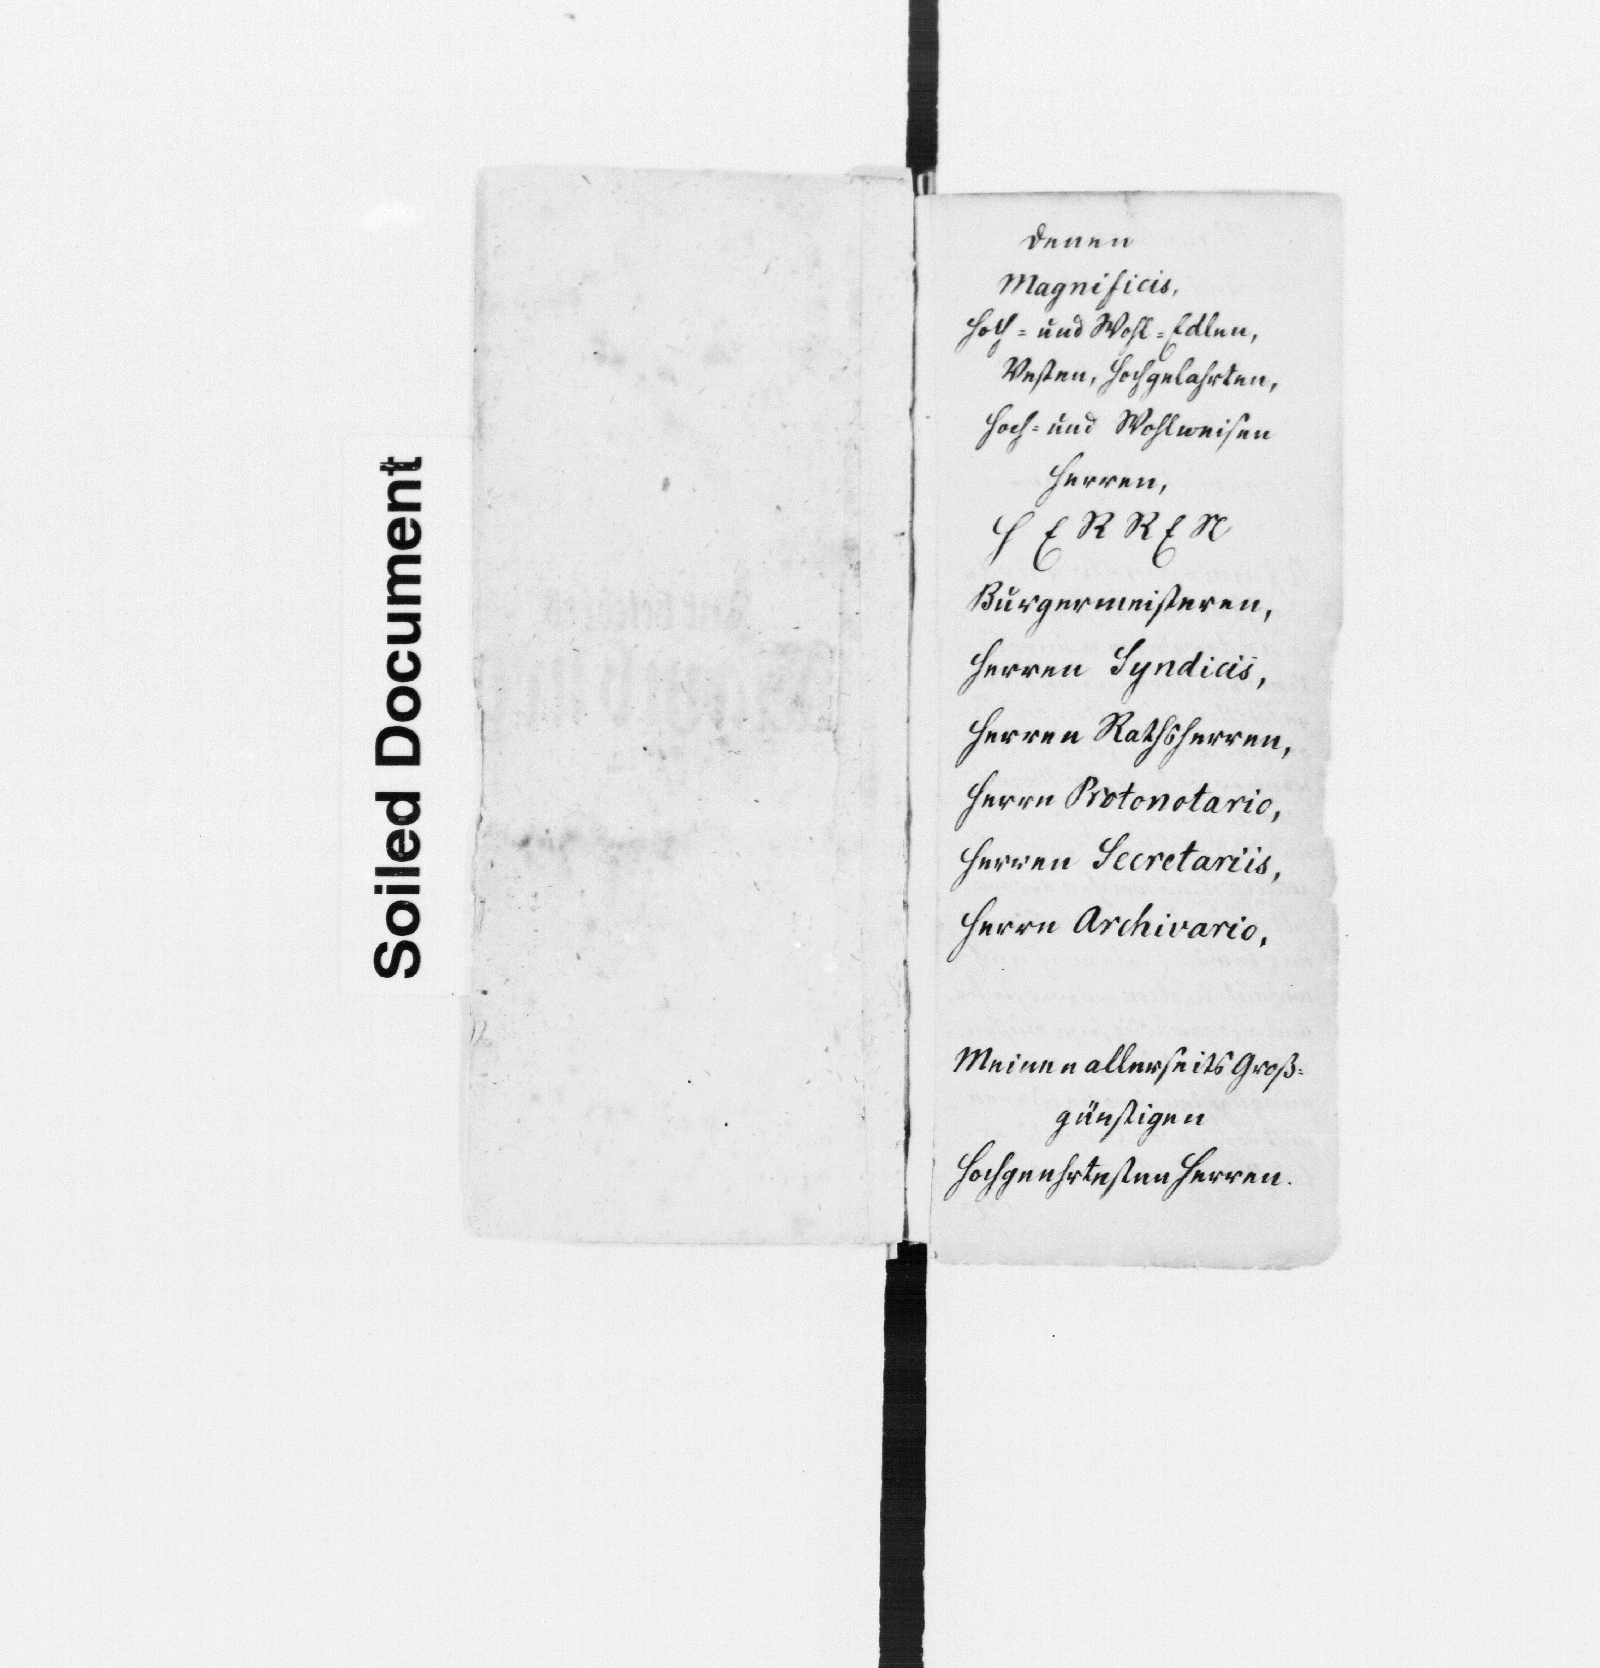 Soiled Document
Denen
Magnificis,
Hoch= und Wohl=Edlen,
Vesten, Hochgelahrten,
Hoch= und Wohlweisen
Herren,
HERREN
Bürgermeisteren,
Herren Syndicis,
Herren Rathsherren,
Herrn Protonotario,
Herren Secretariis,
Herrn Archivario,
Meinen allerseits Groß=
günstigen
Hochgeehrtesten Herren.